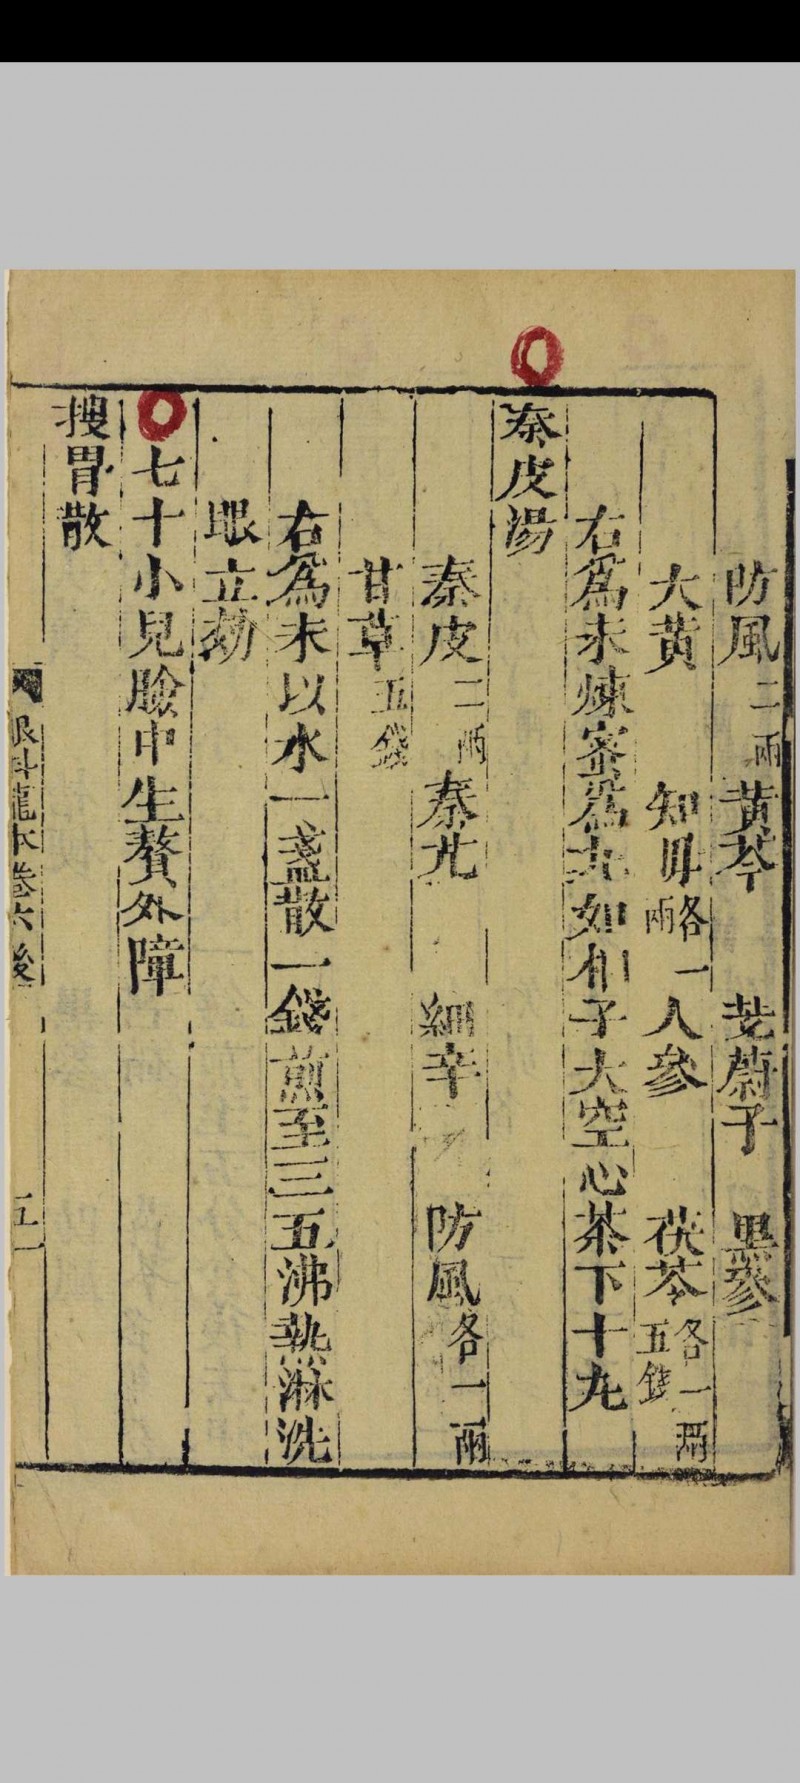 防風二兩 黄芩 茺蔚子 黑參
大黄 知母各一兩 人參 茯苓各一兩五錢
右爲末煉蜜爲丸如桐子大空心茶下十九
秦皮湯
秦皮二兩 秦艽 細辛 防風各一兩
甘草五錢
右爲末以水一盞散一錢煎至三五沸熱淋洗
眼立効
七十小兒臉中生贅外障
搜胃散
眼科龍木卷六後
五一